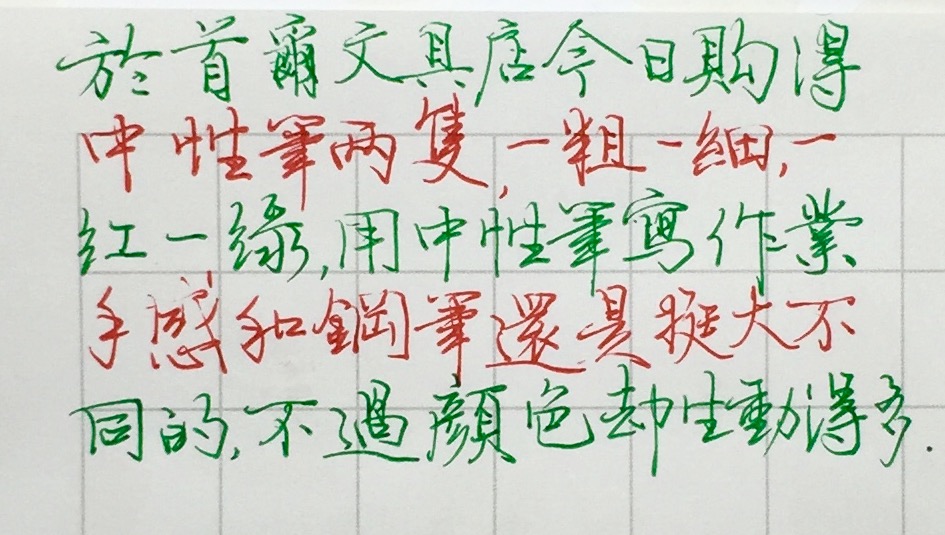 於首爾文具店今日購得
中性筆兩隻,一粗一細,一
紅一綠,用中性筆寫作業
手感和鋼筆還是挺大不
同的,不過顏色却生動得多.